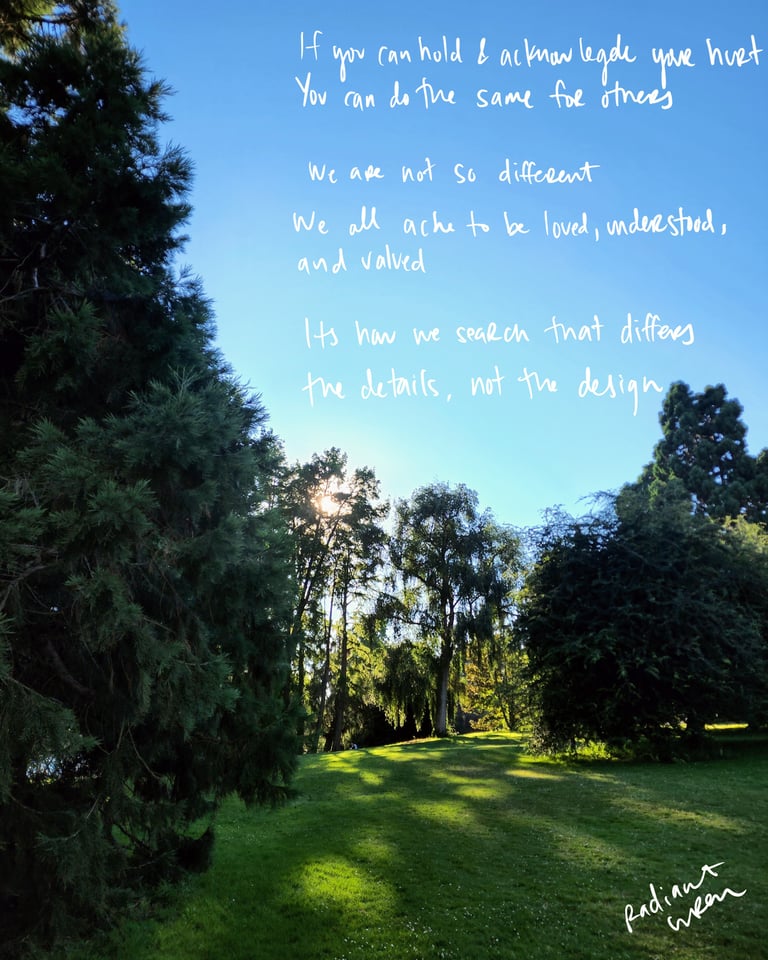 If you can hold & acknowlegde your hurt
You can do the same for others
We are not so different
We all ache to be loved, understood,
and valued
Its how we search that differs
the details, not the design
Radiant
Wren